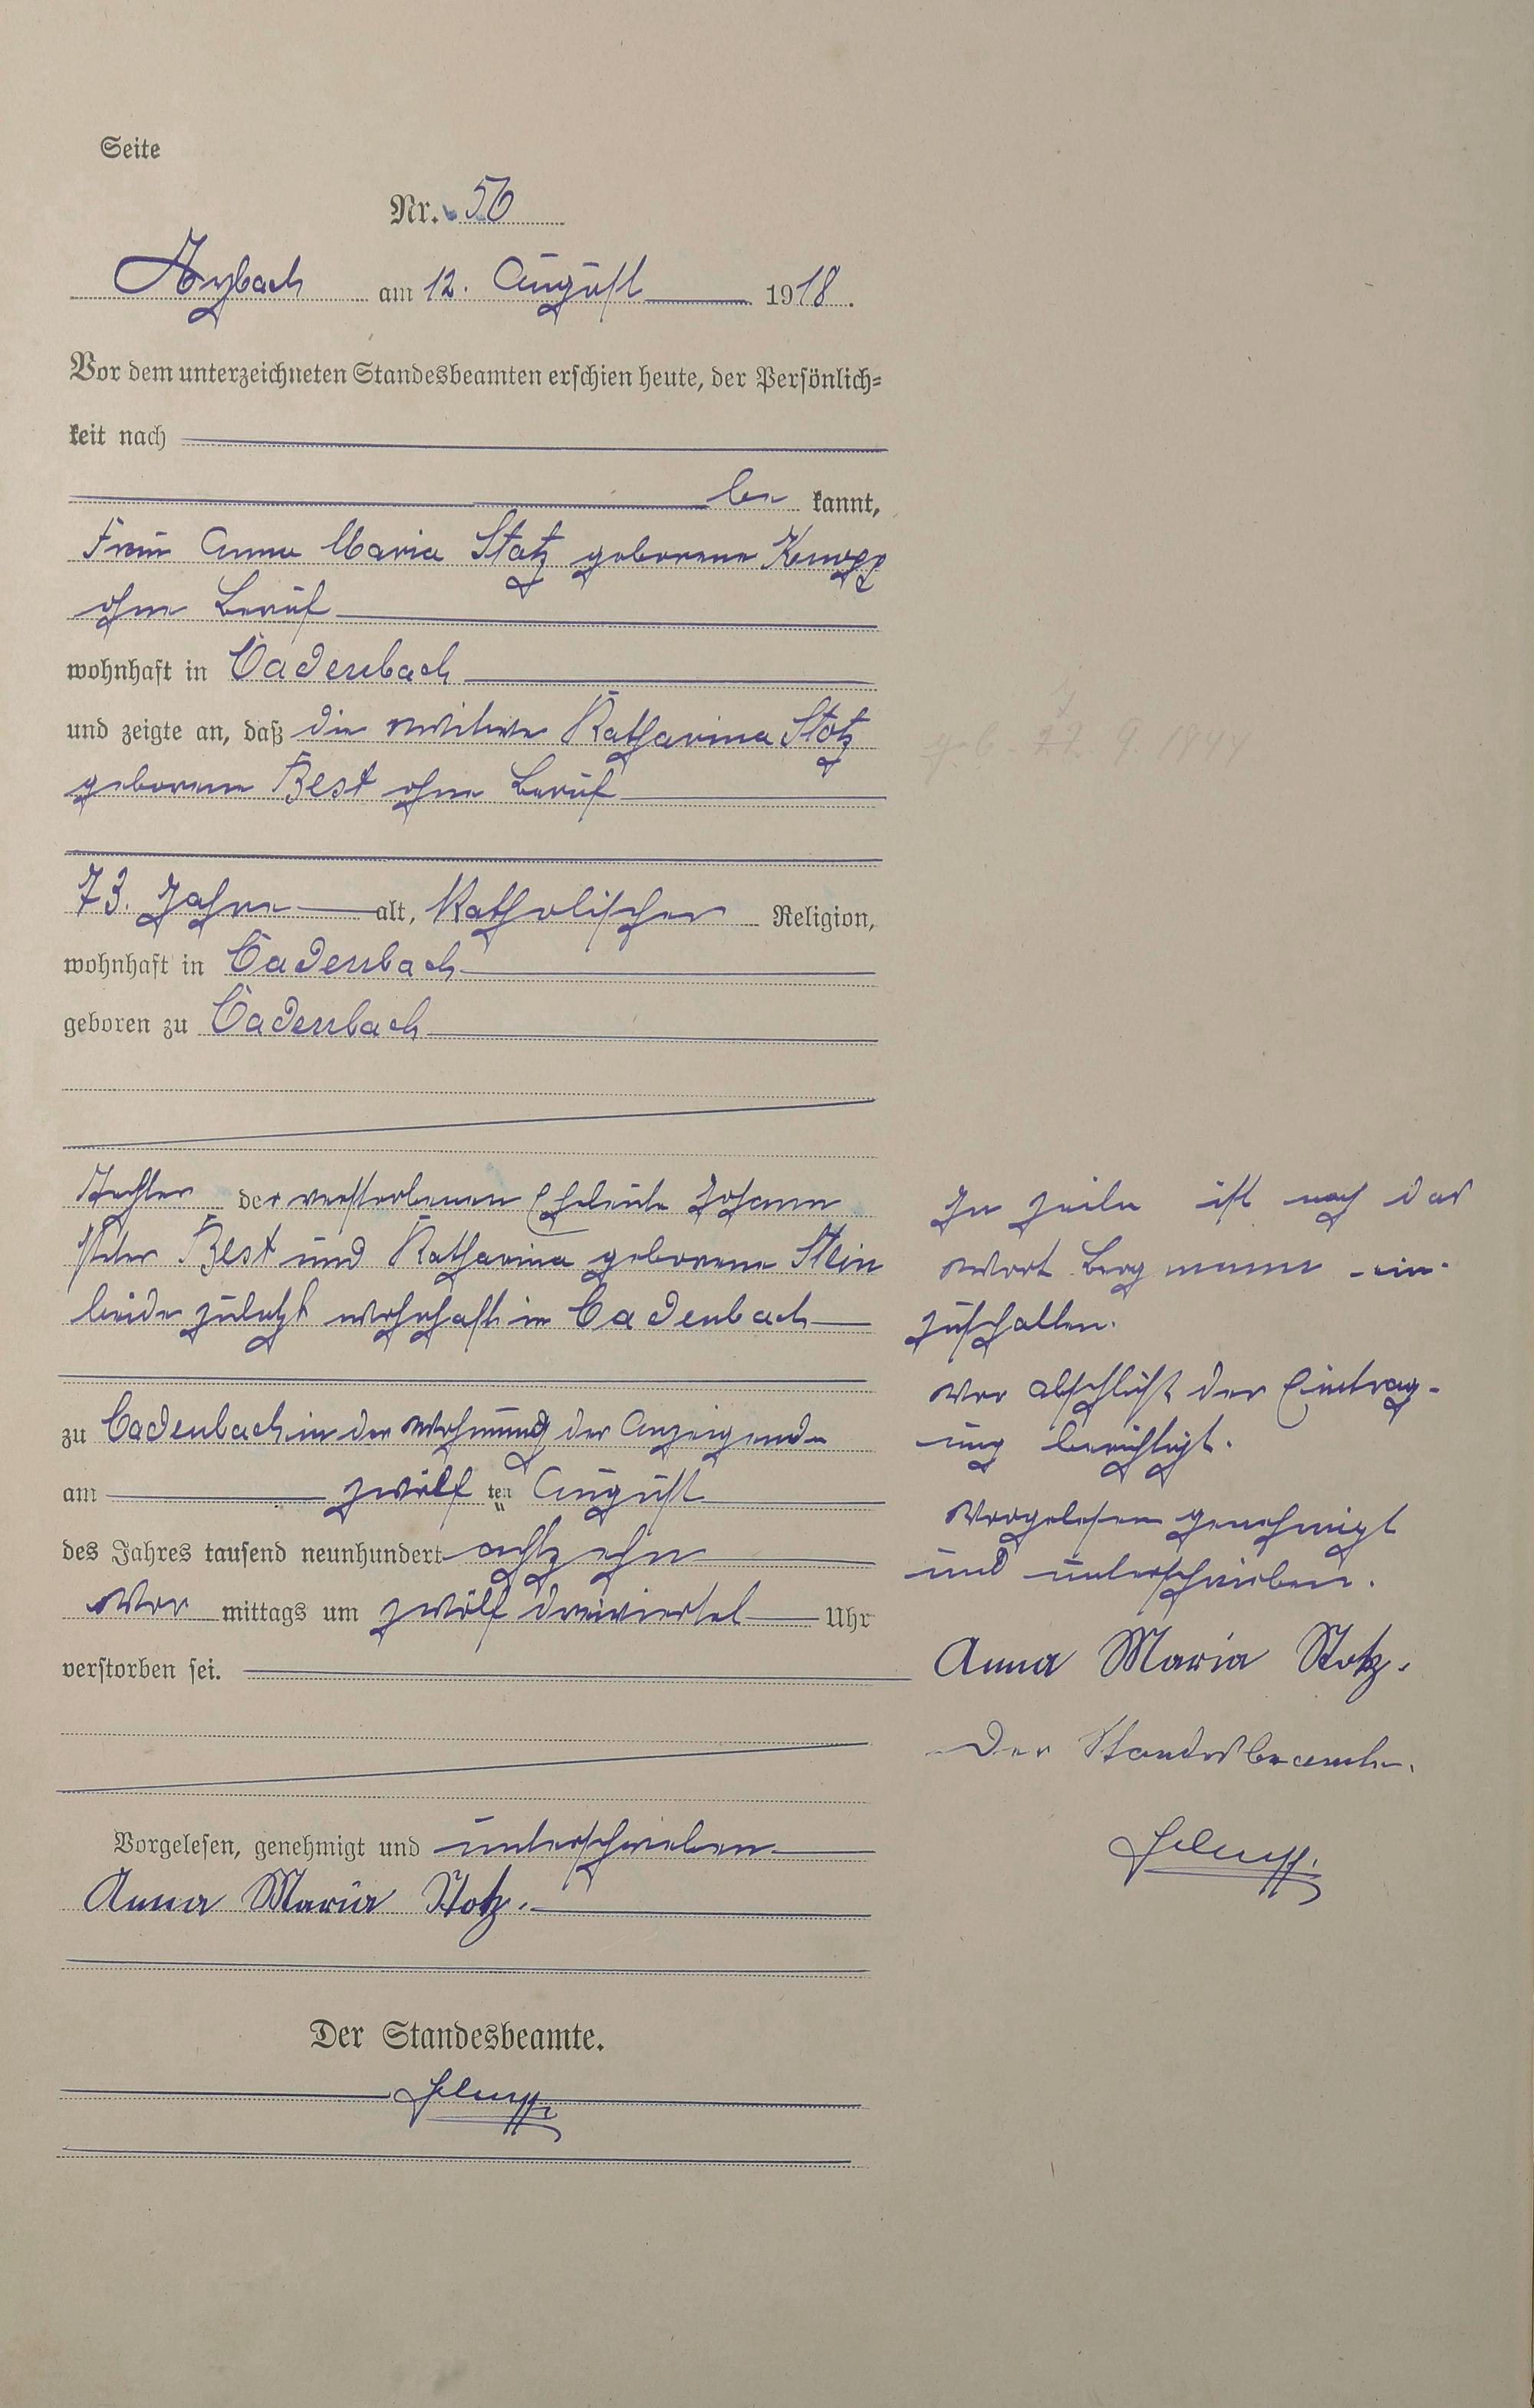 Seite
Nr. 56
Arzbach am 12. August 1918.
Vor dem unterzeichneten Standesbeamten erschien heute, der Persönlich=
keit nach
be kannt,
Frau Anna Maria Stotz geborene Knopp
ohne Beruf
wohnhaft in Cadenbach
und zeigte an, daß die Witwe Katharina Stotz
geborene Best ohne Beruf
73. Jahre alt, Katholischer Religion,
wohnhaft in Cadenbach
geboren zu Cadenbach
Tochter der verstorbenen Eheleute Johann
Peter Best und Katharina geborene Stein
beide zuletzt wohnhaft in Cadenbach
zu Cadenbach in der Wohnung der Anzeigende
am zwölf ten August
des Jahres tausend neunhundert achtzehn
Vor mittags um zwölf dreiviertel Uhr
verstorben sei.
Vorgelesen, genehmigt und unterschrieben
Anna Maria Stotz.
Der Standesbeamte.
geb. 9. 1844
In Zeile ist nach das
Wort Bergmann ein-
zuschalten.
Vor Abschluß der Eintrag-
ung berichtigt.
Vorgelesen genehmigt
und unterschrieben.
Anna Maria Stotz.
Der Standesbeamte.